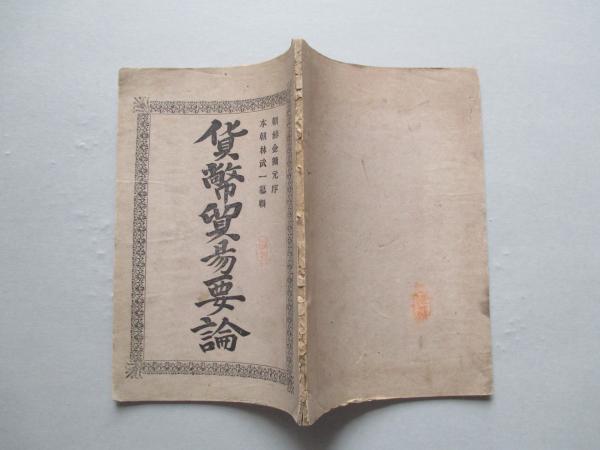 朝鮮金鶴元序
本朝林武一纂輯
貨幣貿易要論